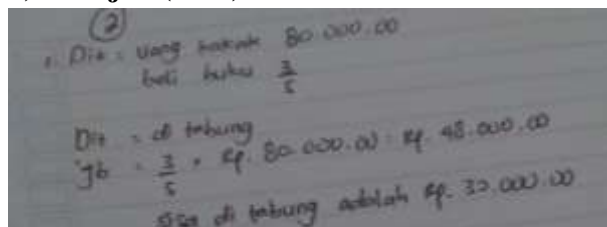 2
1. Dit = uang kakak 80.000.00
beli buku 3/5
Dit = di tabung
Jb = 3/5 × Rp. 80.000.00 = Rp. 48.000.00
sisa di tabung adalah Rp. 32.000.00